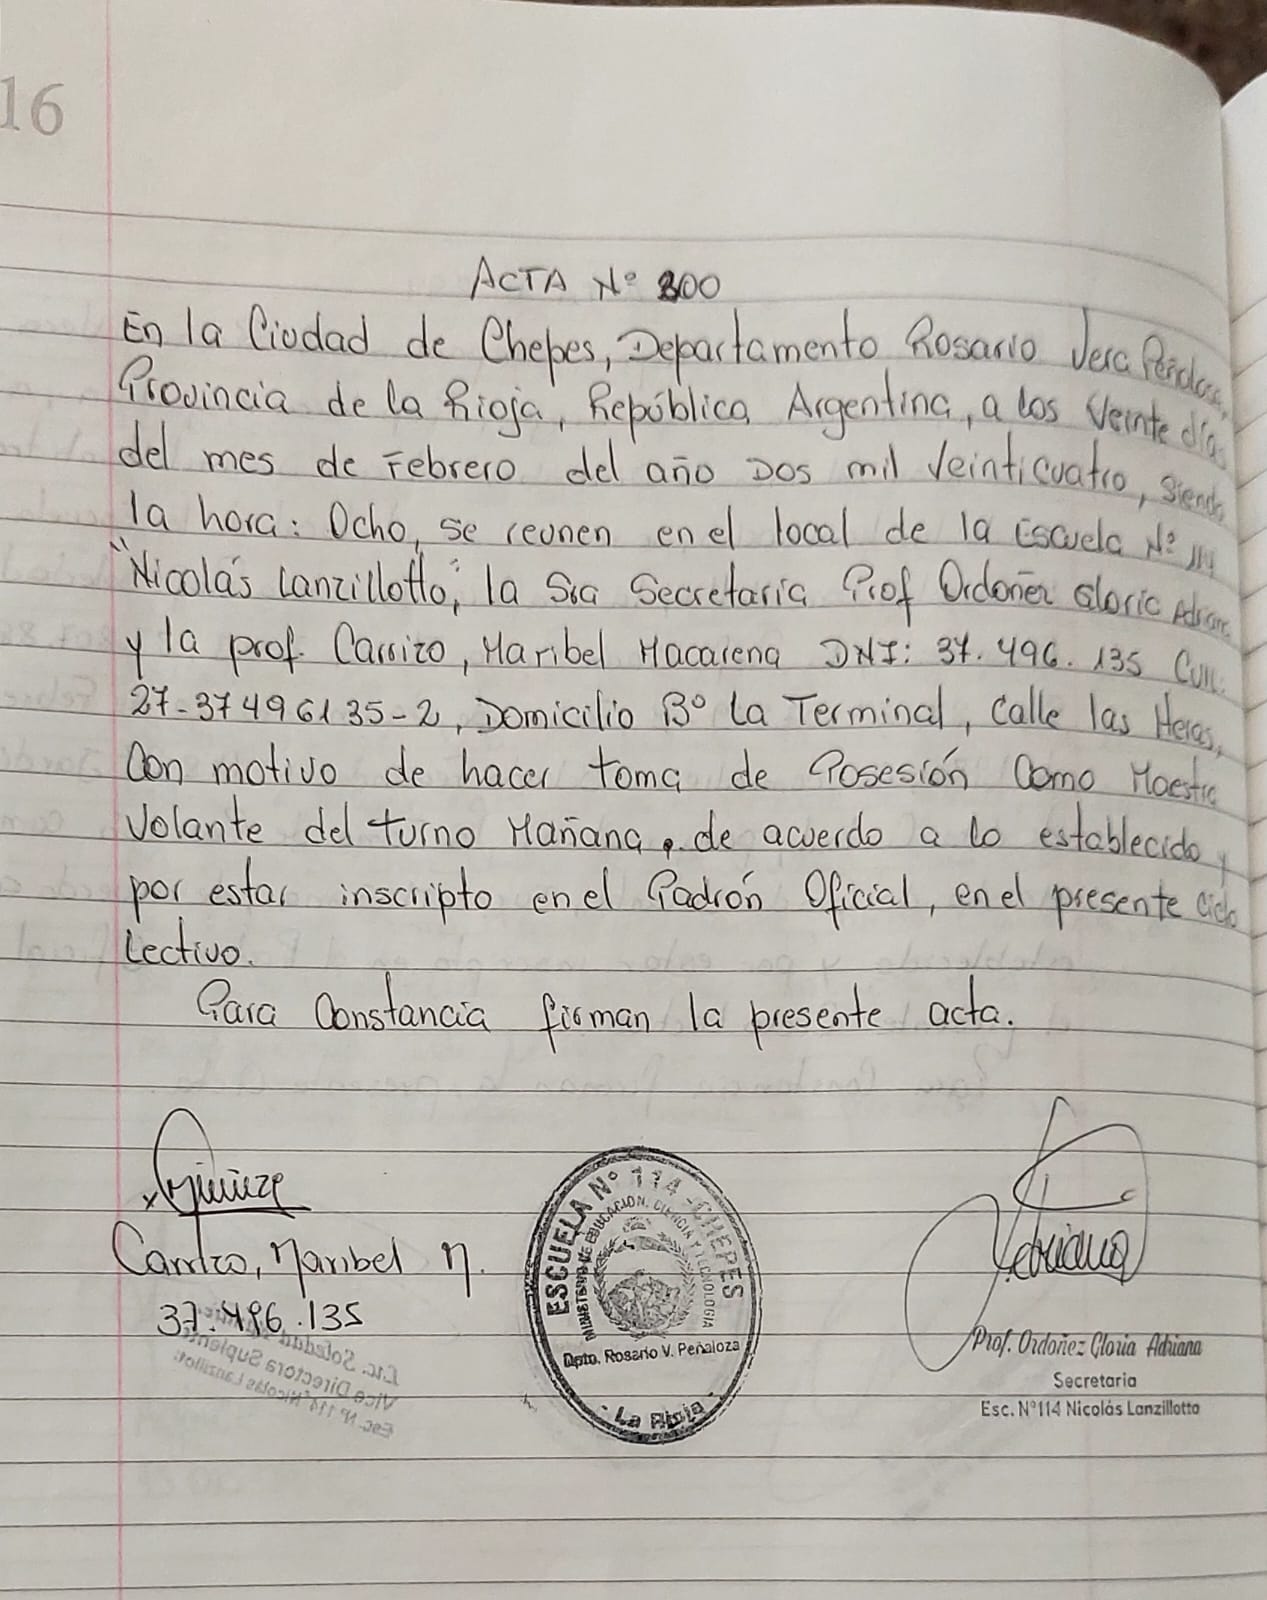 16
ACTA N° 300
En la Ciudad de Chepes, Departamento Rosario Vera Peñaloza,
Provincia de la Rioja, República Argentina, a los Veinte días
del mes de Febrero del año Dos mil Veinticuatro, Siendo
la hora: Ocho, se reunen en el local de la Escuela N° 114
"Nicolás Lanzillotto", la Sra Secretaria Prof Ordoñez Gloria Adriana
y la prof. Carrizo, Maribel Macarena DNI: 37.496.135 Cuil:
27-37496135-2, Domicilio B° La Terminal, Calle las Heras,
Con motivo de hacer toma de Posesión Como Maestra
Volante del turno Mañana, de acuerdo a lo establecido y
por estar inscripto en el Padrón Oficial, en el presente Ciclo
Lectivo.
Para Constancia firman la presente acta.
Carrizo, Maribel M.
37.496.135
ESCUELA N° 114 - CHEPES
MINISTERIO DE EDUCACION, CIENCIA Y TECNOLOGIA
Dpto. Rosario V. Peñaloza
- La Rioja -
Adriana
Prof. Ordoñez Gloria Adriana
Secretaria
Esc. N°114 Nicolás Lanzillotto